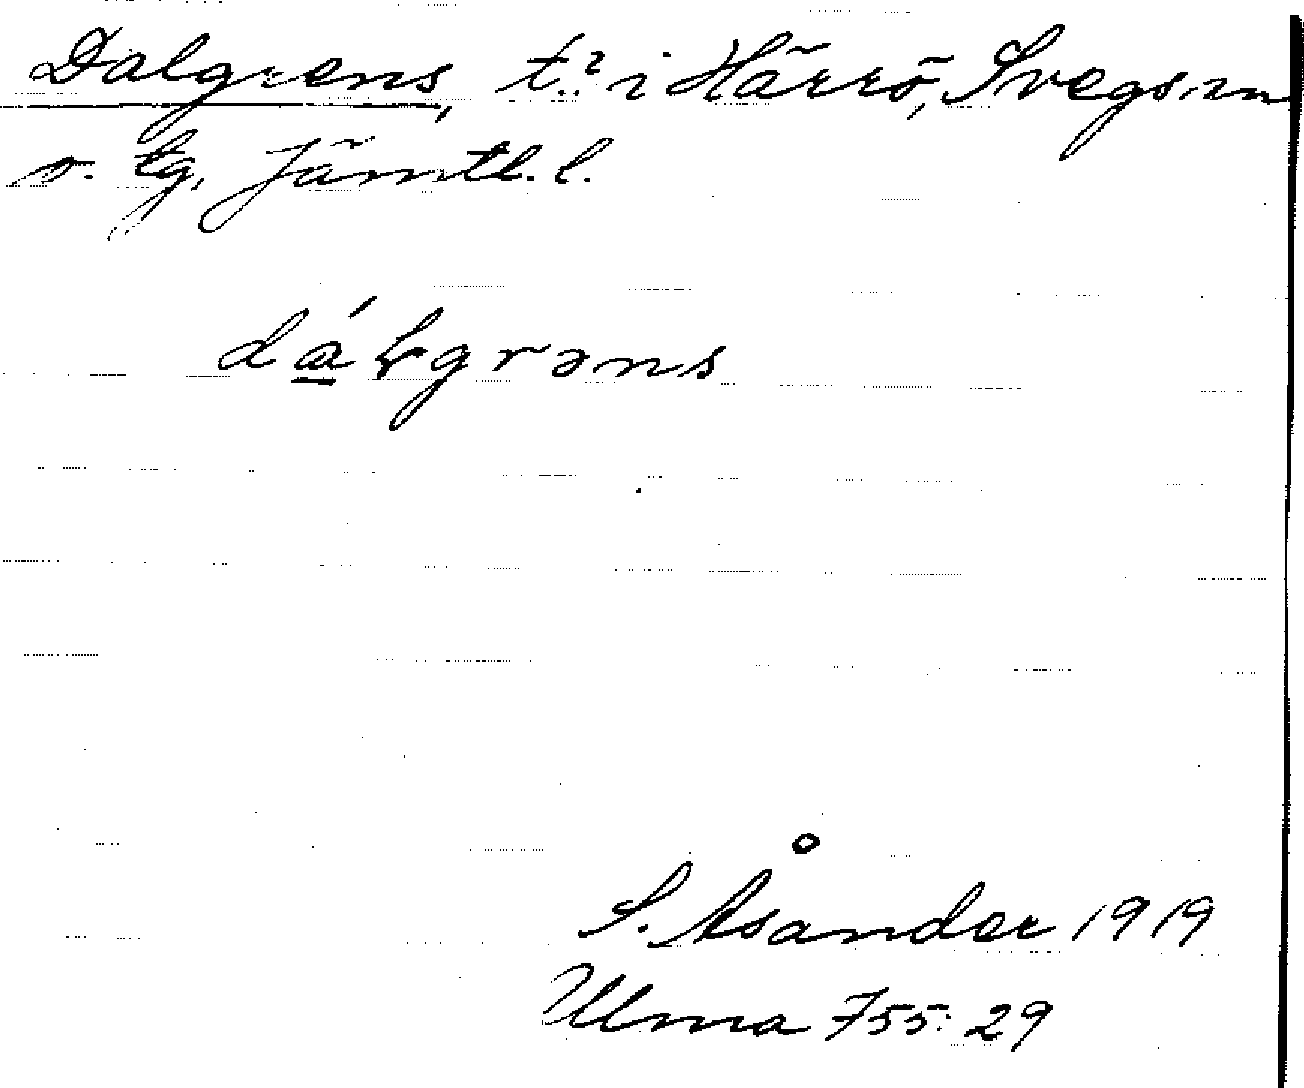 Dalgrens, t.? i Härrö, Svegs sn
o. tg, Jämtl. l.
dálgrəns
S. Åsander 1919
Ulma 755:29